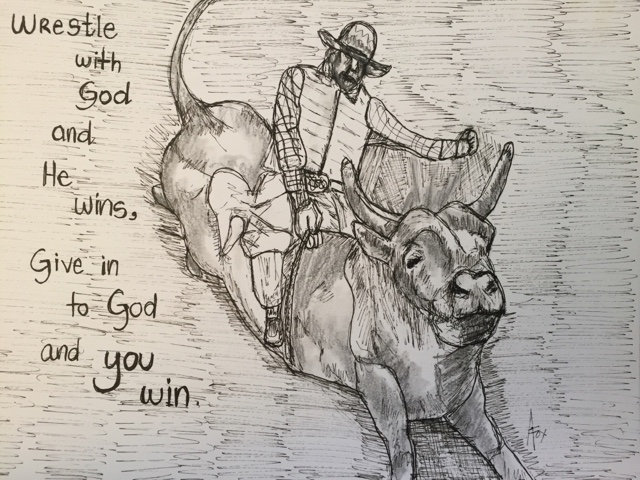 Wrestle
with
God
and
He
wins,
Give in
to God
and you
win.